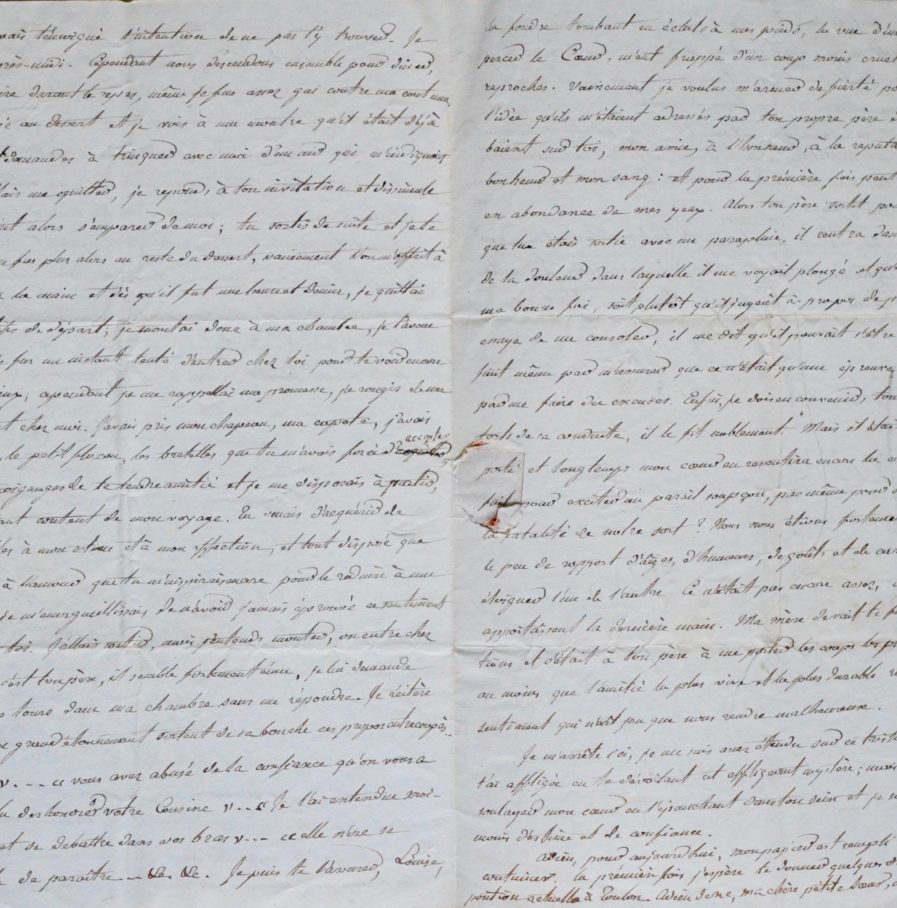 vais témoigné l'intention de ne pas t'y trouver. Je
près-midi. Cependant nous descendons ensemble pour dîner,
ire durant le repas, même je fus assez gai contre ma coutume,
au dessert et je vois à ma montre qu'il était déjà
demandes à trinquer avec moi d'un air qui
mais me, je réponds à ton invitation et dissimule
alors s'emparer de moi ; tu sortis de suite et je te
fus plus alors au reste du dessert, vainement l'on m'offrit à
la main et dès qu'il fut une heure et demie, je quittai
de départ ; je montai donc à ma chambre, je l'avoue
je fus un instant tenté d'entrer chez toi pour te voir encore
cependant je me rappellai ma promesse, je rougis de ma
chez moi. J'avais pris mon chapeau, ma capote, j'avais
accepter
le petit flacon, les bretelles que tu m'avais forcé d'
témoignages de ta tendre amitié et je me disposais à partir,
content de mon voyage. Tu venais d'acquérir de
à mon estime et à mon affection, et tout disposé que
à l'amour que tu m'inspirais encore pour le réduire à une
je m'enorgueillissais de n'avoir jamais éprouvé ce sentiment
toi. J'allais sortir, mais j'entends monter, on entre chez
c'est ton père, il semble fortement ému, je lui demande
tours dans ma chambre sans me répondre. Je réitère
grand étonnement sortent de sa bouche ces propos entrecoupés..
v . . . . « vous avez abusé de la confiance qu'on vous a
deshonoré votre Cousine v . . « Je l'ai entendue
et se débattre dans vos bras v . . . « elle n'ose
de paraître — &c. &c. Je puis te l'assurer, Louise,
la foudre tombant en éclats à mes pieds, la vue d'
percer le Cœur, m'eut frappé d'un coup moins cruel
reproches. Vainement je voulus m'armer de fierté
l'idée qu'ils m'étaient adressés par ton propre père
baient sur toi, mon amie, à l'honneur, à la réputa
bonheur et mon sang : et pour la première fois peut
en abondance de mes yeux. Alors ton père sortit
que tu étais sortie avec un parapluie, il rentra dans
de la douleur dans laquelle il me voyait plongé et
ma bonne foi, soit plutôt qu'il jugeât à propos de
essaya de me consoler, il me dit qu'il pourrait s'être
finit même par m'assurer que ce n'était qu'une épreuve
par me faire des excuses. Enfin, je dois en convenir,
torts de sa conduite, il le fit noblement. Mais il était
porté et longtemps mon cœur en ressentira encore
pour exciter un pareil soupçon, pas même pour
la fatalité de notre sort ? Nous nous étions
le peu de rapport d'âges, d'humeurs, de goûts et de
éloigner l'un de l'autre. Ce n'était pas encore assez,
apportassent la dernière main. Ma mère devait te
et c'était à ton père à me porter les coups les
au moins que l'amitié la plus vive et la plus durable
sentiment qui n'eût pu que nous rendre malheureux.
Je m'arrête ici, je me suis assez étendu sur ce triste
t'ai affligée en te dévoilant cet affligeant mystère ; mais
soulager mon cœur en l'épanchant dans ton sein et je
moins d'estime et de confiance.
Adieu, pour aujourd'hui, mon papier est rempli
continuer. La première fois j'espère te donner quelques
position actuelle à Toulon. Adieu donc, ma chère petite Sœur,